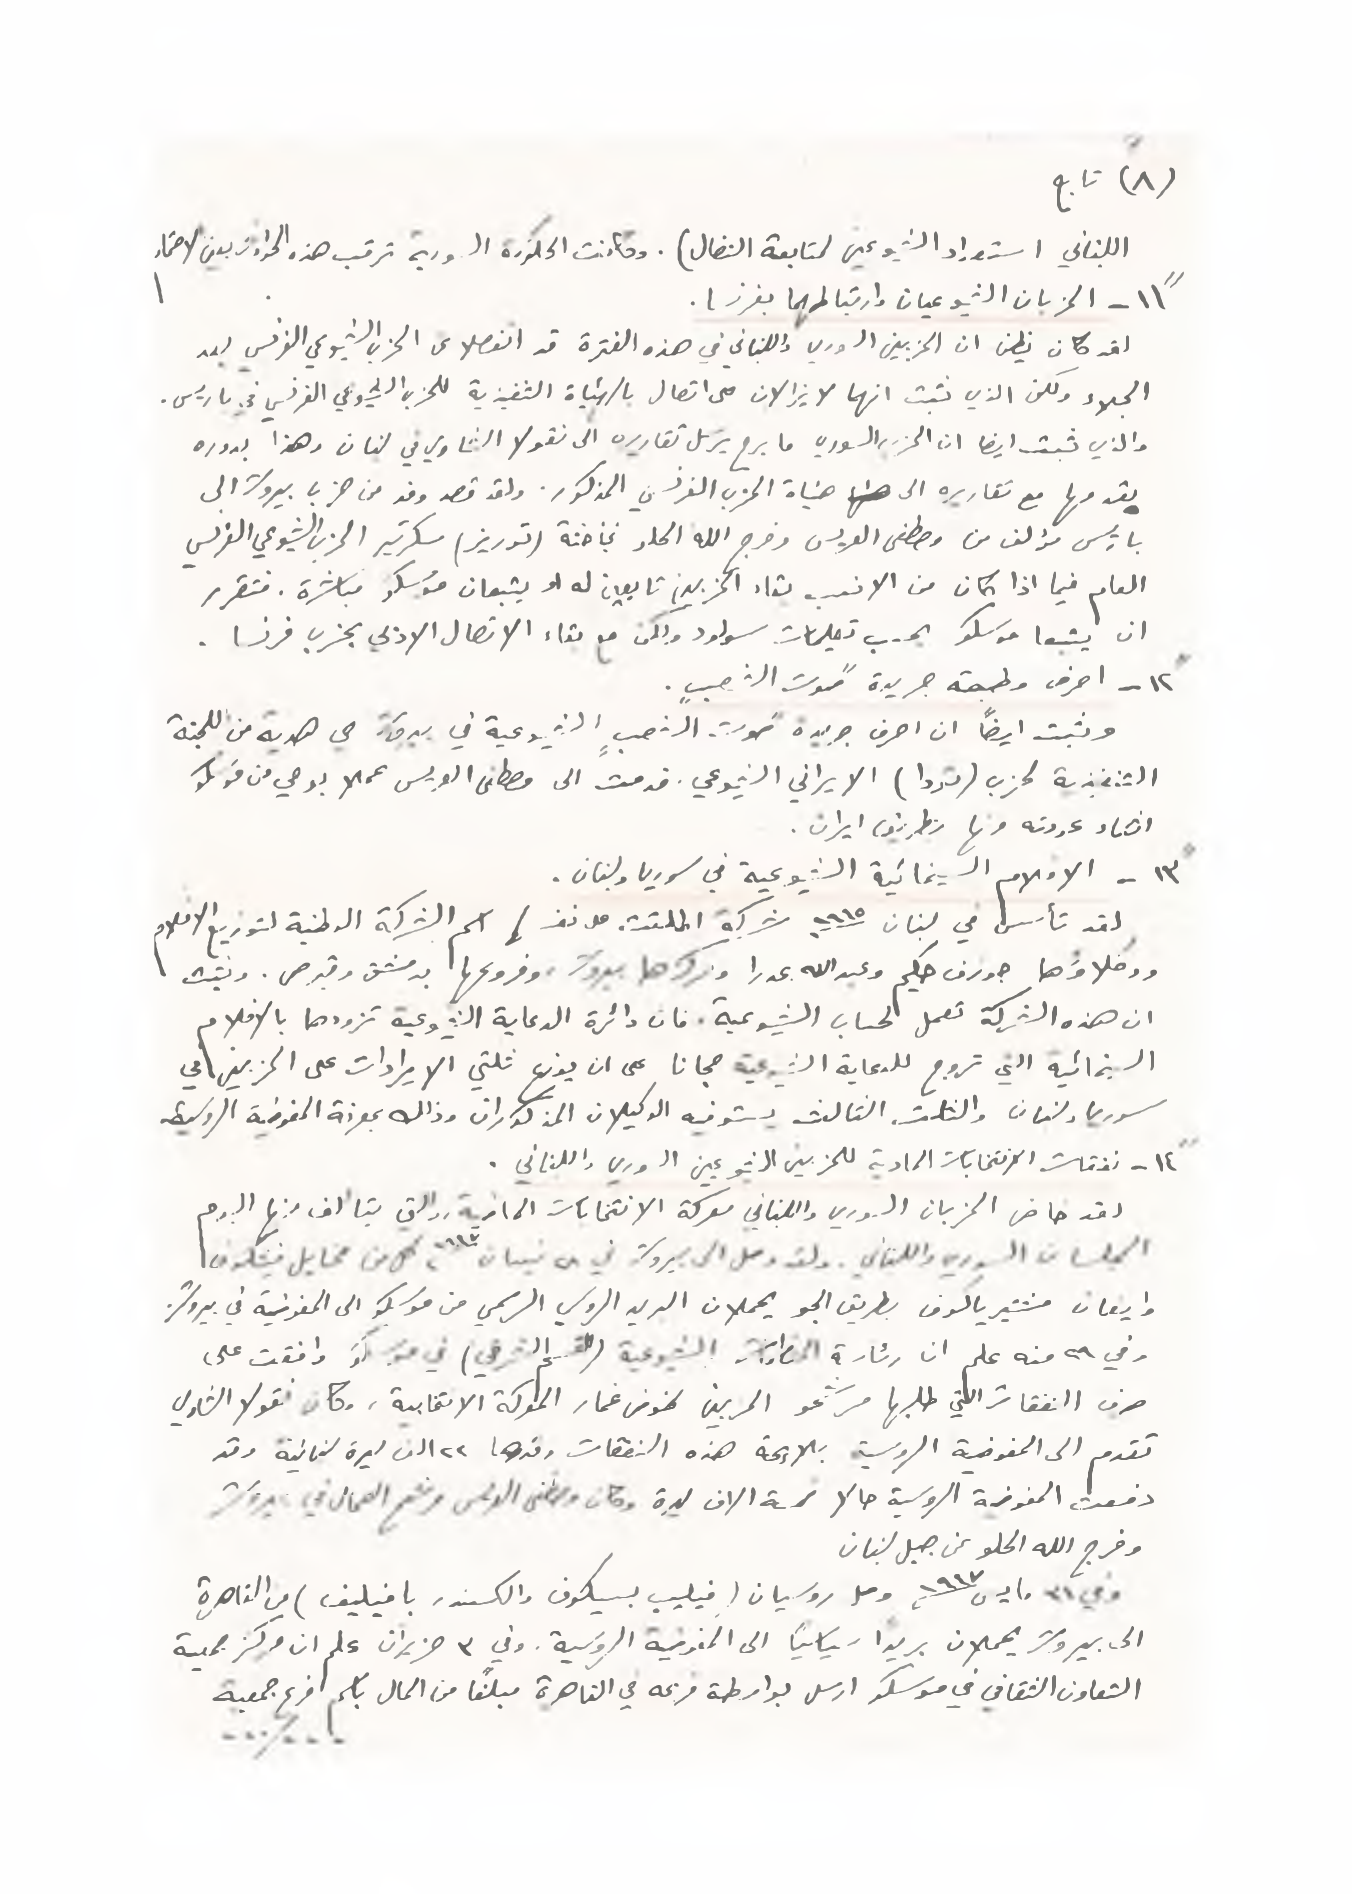 (٨) تابع
اللبناني استعداد الشيوعيين لمتابعة النضال). وكانت الحكومة السورية ترقب هذه الحوادث بعين الاهتمام
١١ - الحزبان الشيوعيان وارتباطهما بفرنسا.
لقد كان يظن ان الحزبين السوري واللبناني في هذه الفترة قد انفصلا عن الحزب الشيوعي الفرنسي بعد
الجلاء ولكن الذي ثبت انهما لا يزالان على اتصال بالهيئة التنفيذية للحزب الشيوعي الفرنسي في باريس.
والذي ثبت ايضا ان الحزب السوري ما برح يرسل تقاريره الى نقولا الشاوي في لبنان وهذا بدوره
يقدمها مع تقاريره الى هيئة الحزب الفرنسي المذكور. ولقد قصد وفد من حزب بيروت الى
باريس مؤلف من مصطفى العريس وفرج الله الحلو لمباحثة (توريز) سكرتير الحزب الشيوعي الفرنسي
العام فيما اذا كان من الانسب بقاء الحزبين تابعين له او يتبعان موسكو مباشرة. فتقرر
ان يتبعا موسكو بحسب تعليمات سولود ولكن مع بقاء الاتصال الادبي بحزب فرنسا.
١٢ - احرف ومطبعة جريدة "صوت الشعب".
وثبت ايضاً ان احرف جريدة "صوت الشعب" الشيوعية في بيروت هي هدية من اللجنة
التنفيذية لحزب (تودا) الايراني الشيوعي. قدمت الى مصطفى العريس عملا بوحي من موسكو
اثناء عودته منها بطريق ايران.
١٣ - الافلام السينمائية الشيوعية في سوريا ولبنان.
لقد تأسس في لبنان شركة اطلقت على نفسها اسم الشركة الوطنية لتوزيع الافلام
ووكلاؤها جوزف حكيم وعبدالله عدرا ومركزها بيروت وفروعها بدمشق وقبرص. وثبت
ان هذه الشركة تعمل لحساب الشيوعية. فان دائرة الدعاية الشيوعية تزودها بالافلام
السينمائية التي تروج للدعاية الشيوعية مجانا على ان يوزع ثلثي الايرادات على الحزبين في
سوريا ولبنان والثلث الثالث يستوفيه الوكيلان المذكوران وذلك بمعرفة المفوضية الروسية.
١٤ - نفقات الانتخابات المادية للحزبين الشيوعيين السوري واللبناني.
لقد خاض الحزبان السوري واللبناني معركة الانتخابات الماضية والتي يتألف منها اليوم
المجلسان السوري واللبناني. ولقد وصل الى بيروت في نيسان كل من مخايل فيتكوف
وايفان مشتيرياكوف بطريق الجو يحملان البريد الروسي الرسمي من موسكو الى المفوضية في بيروت.
وفي منه علم ان الشيوعية (القسم الشرقي) في موسكو وافقت على
صرف النفقات التي طلبها مرشحو الحزبين لخوض غمار المعركة الانتخابية، وكان نقولا الشاوي
تقدم الى المفوضية الروسية بلائحة هذه النفقات وقدرها ٢٢ الف ليرة لبنانية وقد
دفعت المفوضية الروسية حالا خمسة الاف ليرة وكان مصطفى العريس مرشح العمال في بيروت
وفرج الله الحلو عن جبل لبنان
وفي ٣١ مايس ١٩٤٧ وصل روسيان (فيليب بسيكوف والكسندر بافيليف) من القاهرة
الى بيروت يحملان بريدا سياسيا الى المفوضية الروسية. وفي ٣ حزيران علم ان مركز جمعية
التعاون الثقافي في موسكو ارسل بواسطة فرعه في القاهرة مبلغا من المال باسم فرع جمعية